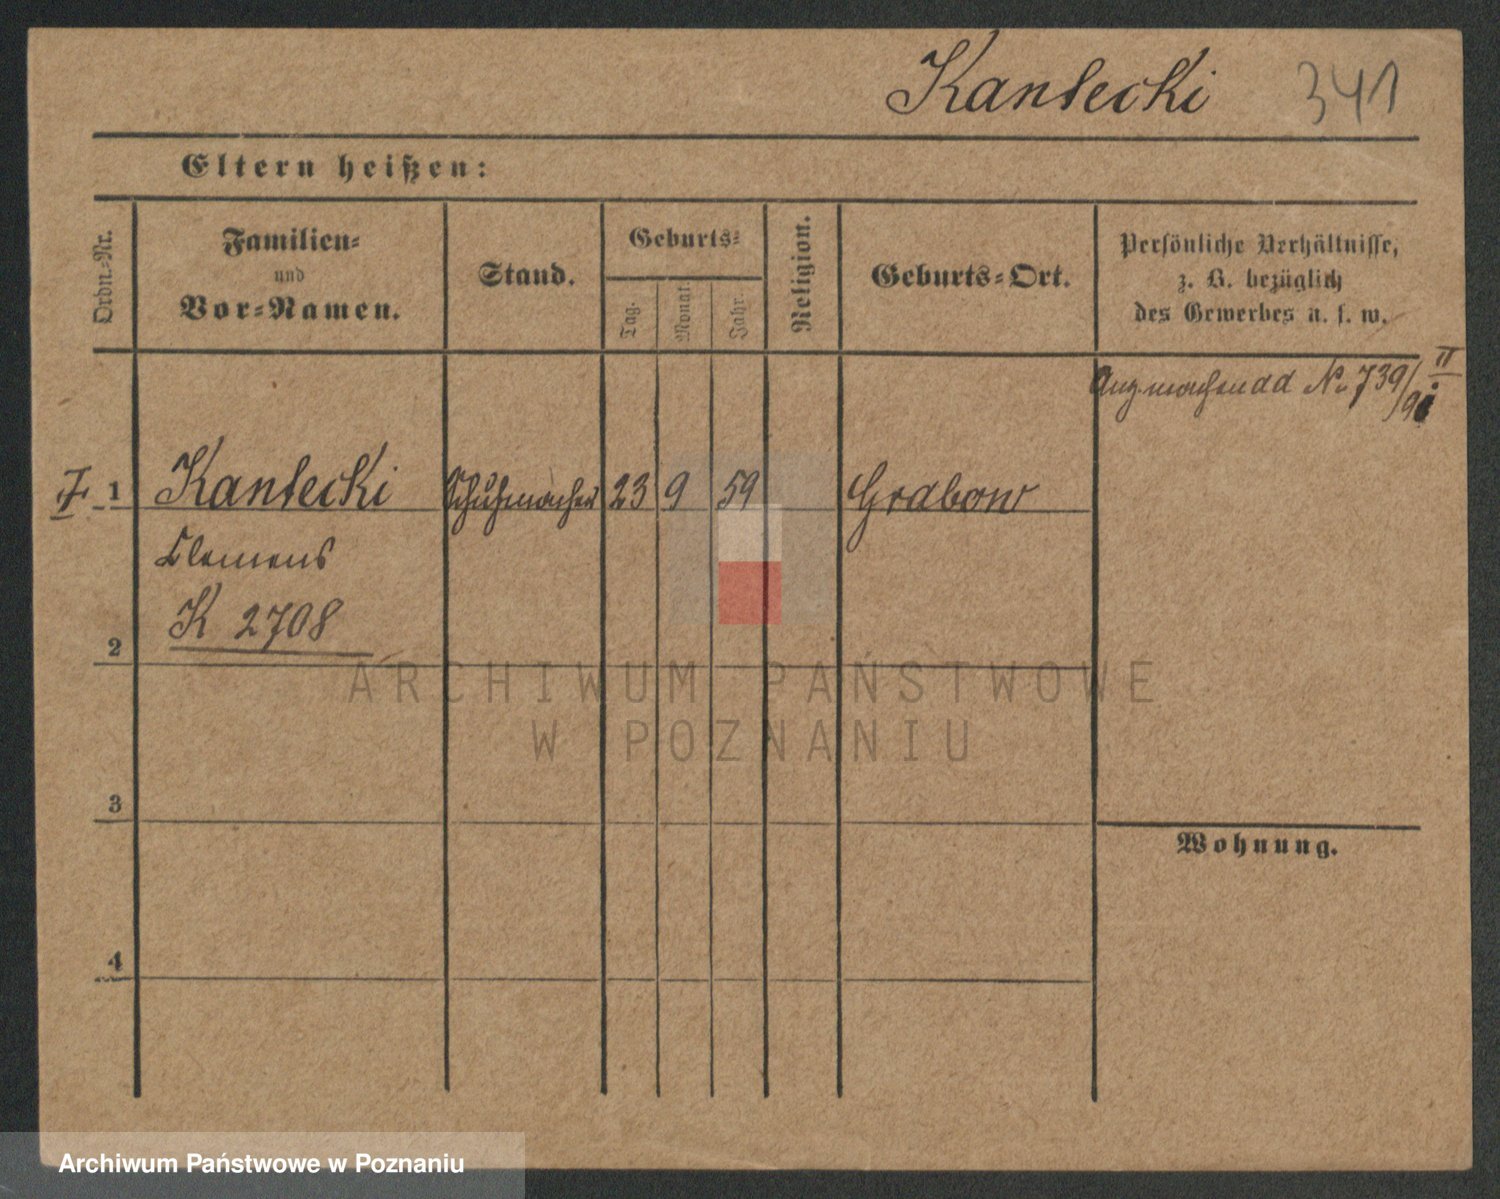 Kantecki 341
Eltern heißen:
Ordn.-Nr.
Familien-
und
Vor-Namen.
Stand.
Geburts-
Tag.
Monat.
Jahr.
Religion.
Geburts-Ort.
Persönliche Verhältnisse,
z. B. bezüglich
des Gewerbes u. s. w.
No 739/91 II
I 1 Kantecki Schuhmacher 23 9 59 Grabow
Clemens
K 2708
2
ARCHIWUM PAŃSTWOWE
W POZNANIU
3
Wohnung.
4
Archiwum Państwowe w Poznaniu